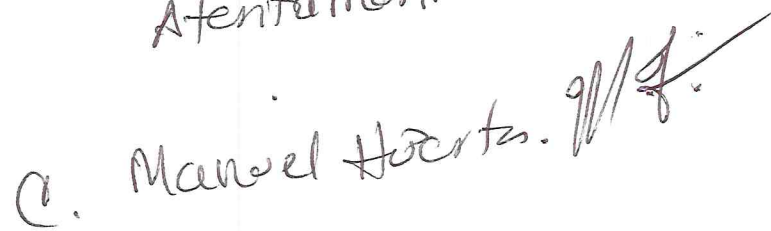 Atentamen
C. Manuel Huerta.